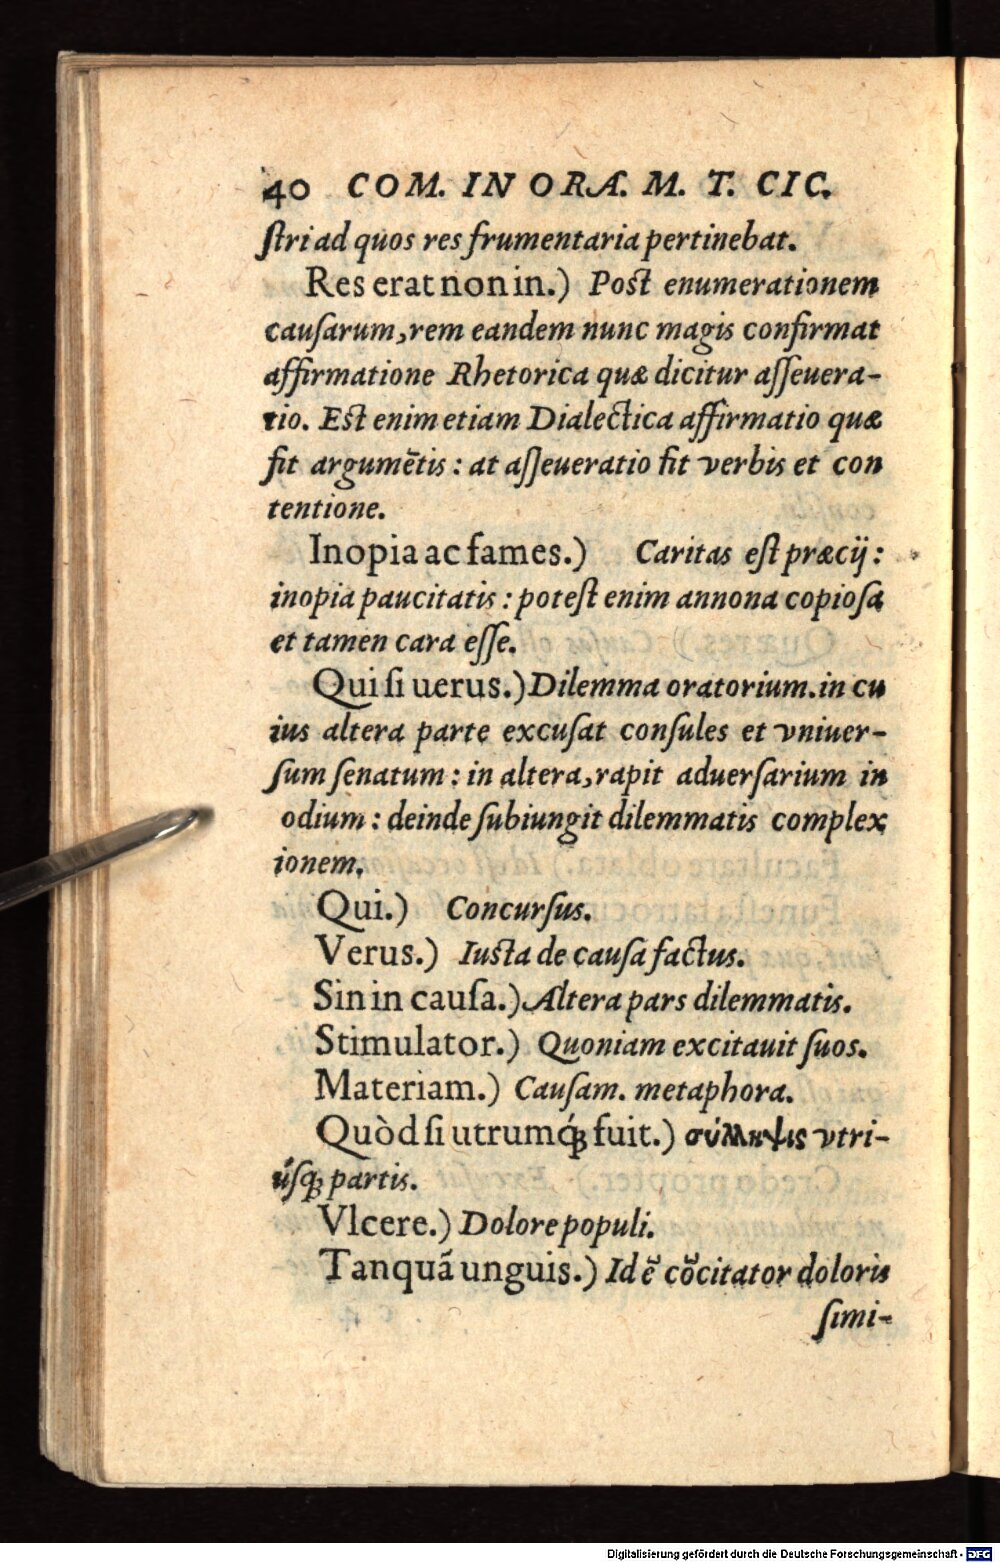 40 COM. IN ORA. M. T. CIC.
ſtri ad quos res frumentaria pertinebat.
Res erat non in.) Poſt enumerationem
cauſarum, rem eandem nunc magis confirmat
affirmatione Rhetorica quæ dicitur aſſeuera-
tio. Eſt enim etiam Dialectica affirmatio quæ
fit argumētis: at aſſeueratio fit verbis et con
tentione.
Inopia ac fames.) Caritas eſt præcij:
inopia paucitatis: poteſt enim annona copioſa
et tamen cara eſſe.
Qui ſi uerus.) Dilemma oratorium. in cu
ius altera parte excuſat conſules et vniuer-
ſum ſenatum: in altera, rapit aduerſarium in
odium: deinde ſubiungit dilemmatis complex
ionem.
Qui.) Concurſus.
Verus.) Iuſta de cauſa factus.
Sin in cauſa.) Altera pars dilemmatis.
Stimulator.) Quoniam excitauit ſuos.
Materiam.) Cauſam. metaphora.
Quòd ſi utrumq́; fuit.) σύλληψις vtri-
úſq; partis.
Vlcere.) Dolore populi.
Tanquā unguis.) Id ē cōcitator doloris
ſimi-
Digitalisierung gefördert durch die Deutsche Forschungsgemeinschaft - DFG